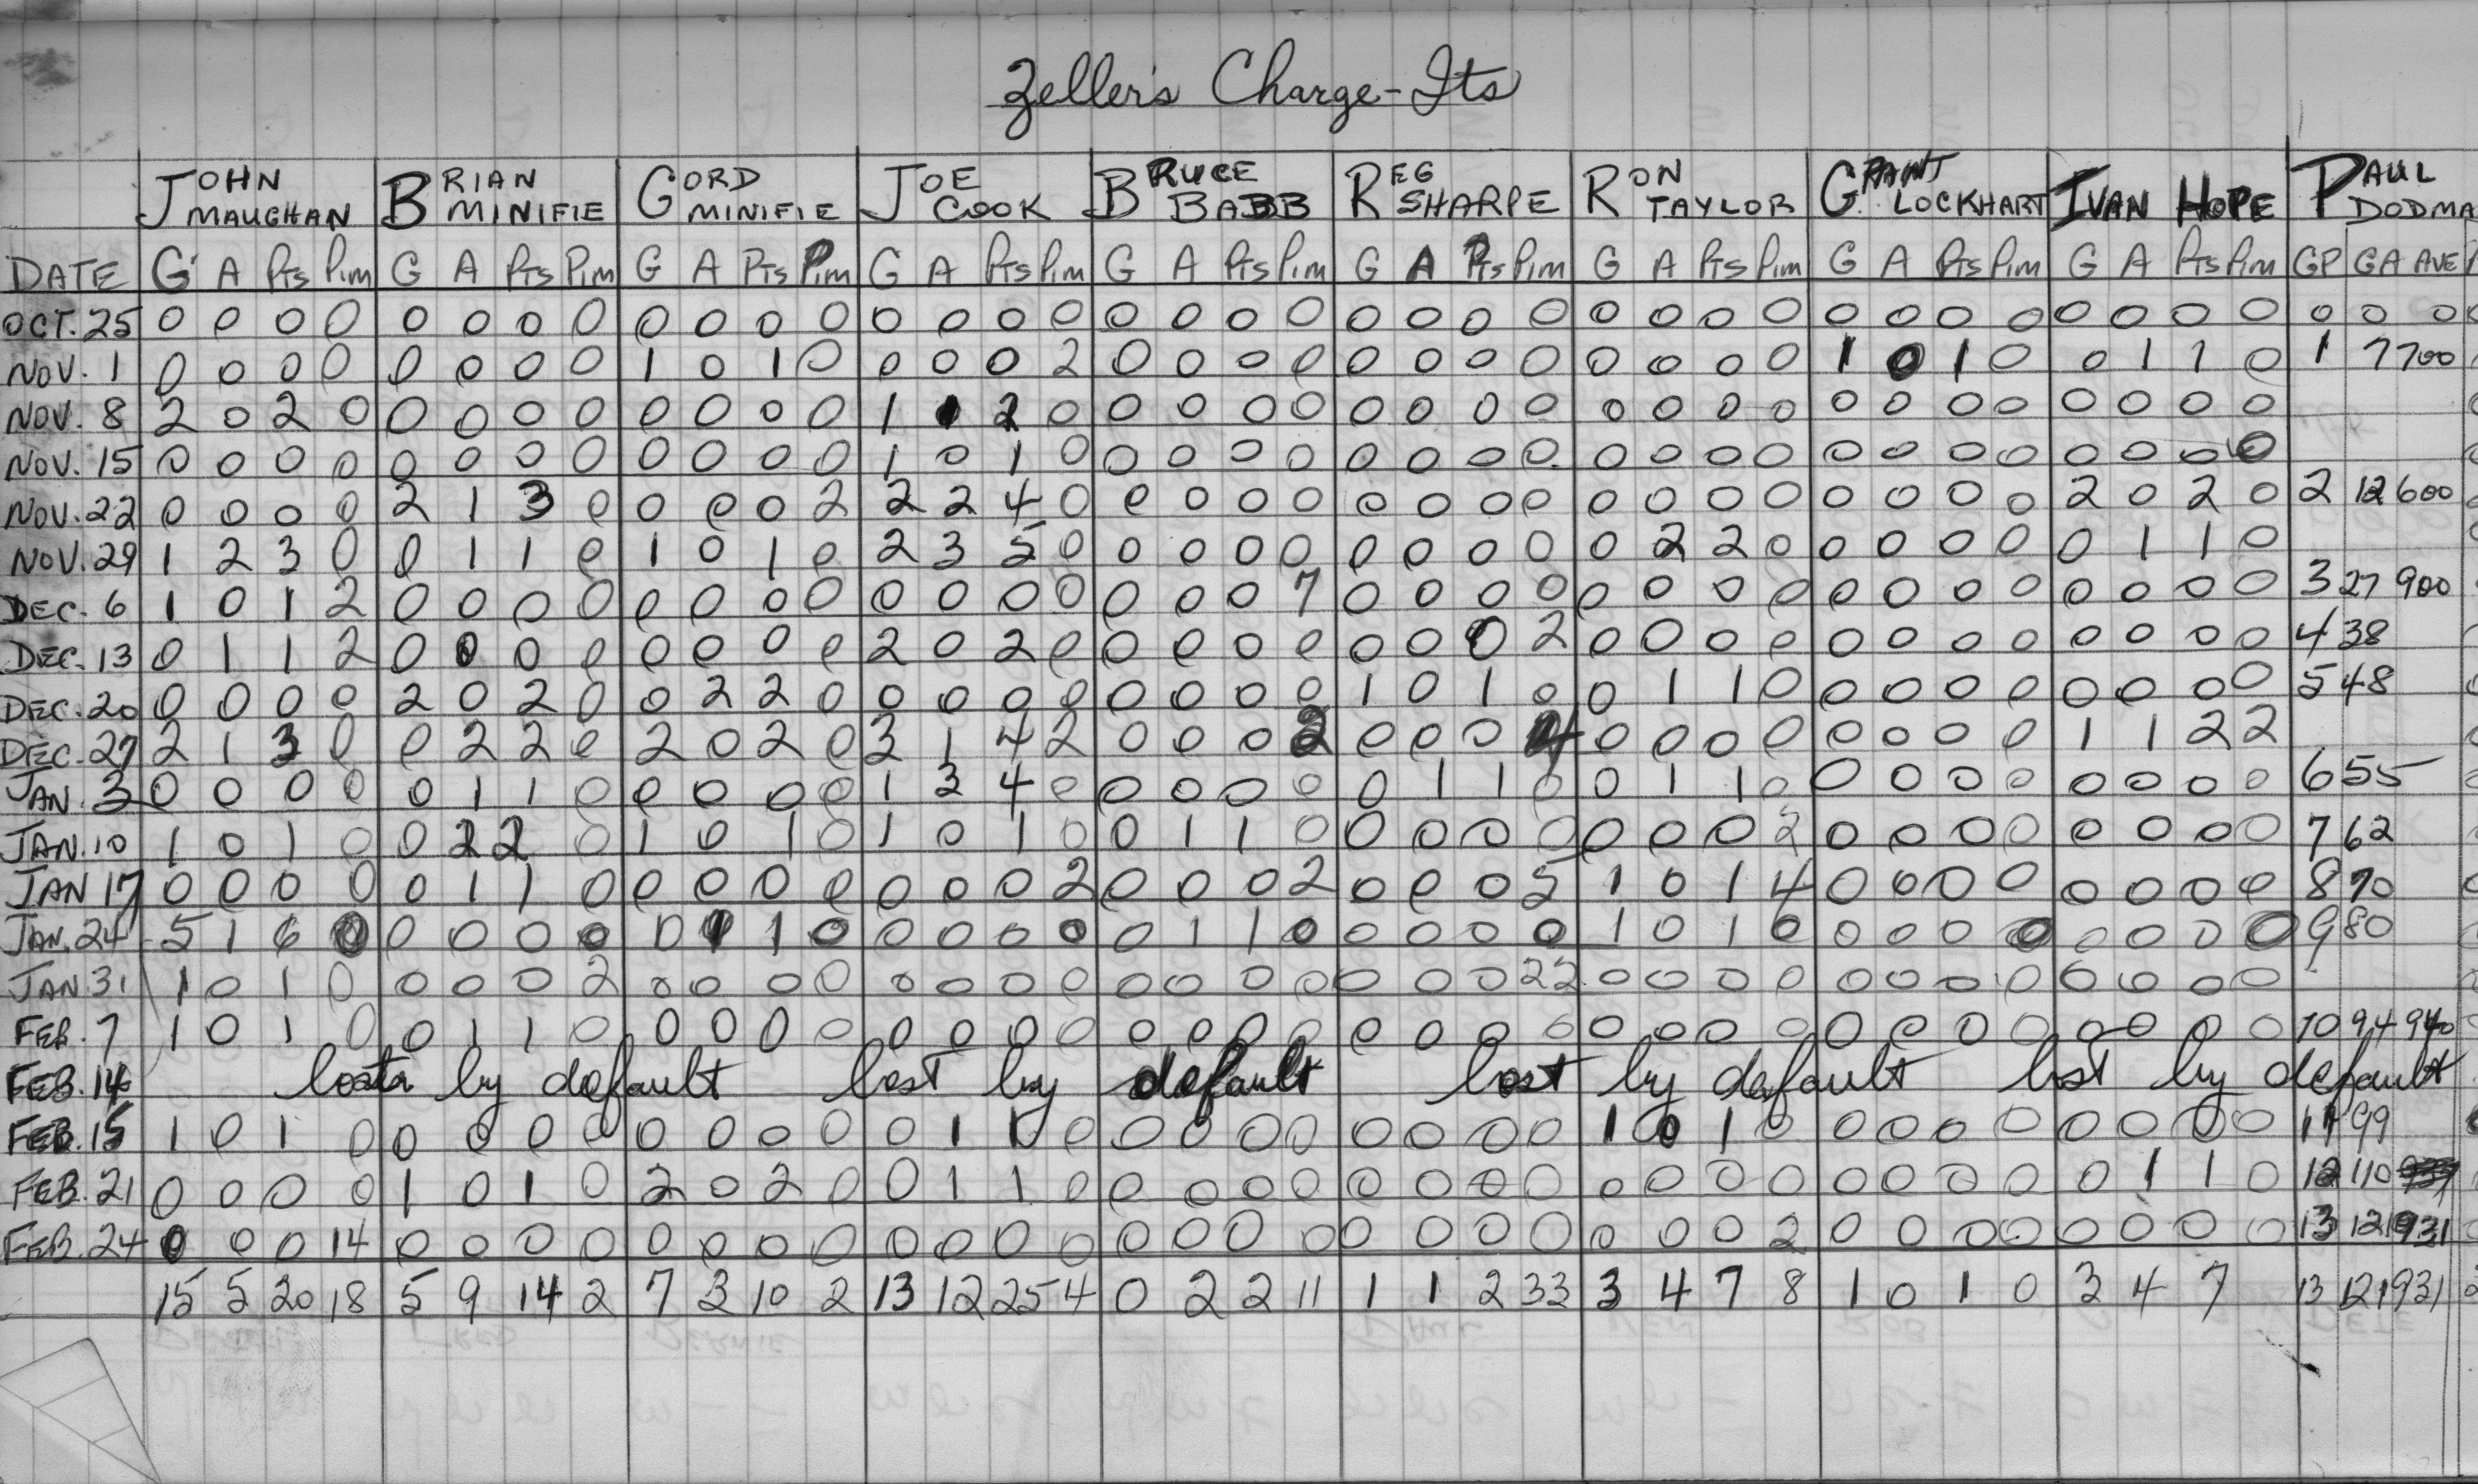 Zeller's Charge-Its
JOHN MAUGHAN BRIAN MINIFIE GORD MINIFIE JOE COOK BRUCE BABB REG SHARPE RON TAYLOR GRANT LOCKHART IVAN HOPE PAUL DODMA
DATE G A Pts Pim G A Pts Pim G A Pts Pim G A Pts Pim G A Pts Pim G A Pts Pim G A Pts Pim G A Pts Pim G A Pts Pim GP GA AVE
OCT. 25 0 0 0 0 0 0 0 0 0 0 0 0 0 0 0 0 0 0 0 0 0 0 0 0 0 0 0 0 0 0 0 0 0 0 0 0 0 0 0
NOV. 1 0 0 0 0 0 0 0 0 1 0 1 0 0 0 0 2 0 0 0 0 0 0 0 0 0 0 0 0 1 0 1 0 0 1 1 0 1 7 700
NOV. 8 2 0 2 0 0 0 0 0 0 0 0 0 1 1 2 0 0 0 0 0 0 0 0 0 0 0 0 0 0 0 0 0 0 0 0 0
NOV. 15 0 0 0 0 0 0 0 0 0 0 0 0 1 0 1 0 0 0 0 0 0 0 0 0 0 0 0 0 0 0 0 0 0 0 0 0
NOV. 22 0 0 0 0 2 1 3 0 0 0 0 2 2 2 4 0 0 0 0 0 0 0 0 0 0 0 0 0 0 0 0 0 2 0 2 0 2 12 600
NOV. 29 1 2 3 0 0 1 1 0 1 0 1 0 2 3 5 0 0 0 0 0 0 0 0 0 0 2 2 0 0 0 0 0 0 1 1 0
DEC. 6 1 0 1 2 0 0 0 0 0 0 0 0 0 0 0 0 0 0 0 7 0 0 0 0 0 0 0 0 0 0 0 0 0 0 0 0 3 27 900
DEC. 13 0 1 1 2 0 0 0 0 0 0 0 0 2 0 2 0 0 0 0 0 0 0 0 2 0 0 0 0 0 0 0 0 0 0 0 0 4 38
DEC. 20 0 0 0 0 2 0 2 0 0 2 2 0 0 0 0 0 0 0 0 0 1 0 1 0 0 1 1 0 0 0 0 0 0 0 0 0 5 48
DEC. 27 2 1 3 0 0 2 2 0 2 0 2 0 3 1 4 2 0 0 0 2 0 0 0 4 0 0 0 0 0 0 0 0 1 1 2 2
JAN. 3 0 0 0 0 0 1 1 0 0 0 0 0 1 3 4 0 0 0 0 0 0 1 1 0 0 1 1 0 0 0 0 0 0 0 0 0 6 55
JAN. 10 1 0 1 0 0 2 2 0 1 0 1 0 1 0 1 0 0 1 1 0 0 0 0 0 0 0 0 2 0 0 0 0 0 0 0 0 7 62
JAN 17 0 0 0 0 0 1 1 0 0 0 0 0 0 0 0 2 0 0 0 2 0 0 0 5 1 0 1 4 0 0 0 0 0 0 0 0 8 70
JAN. 24 5 1 6 0 0 0 0 0 0 1 1 0 0 0 0 0 0 1 1 0 0 0 0 0 1 0 1 0 0 0 0 0 0 0 0 0 9 80
JAN. 31 1 0 1 0 0 0 0 2 0 0 0 0 0 0 0 0 0 0 0 0 0 0 0 22 0 0 0 0 0 0 0 0 0 0 0 0
FEB. 7 1 0 1 0 0 1 1 0 0 0 0 0 0 0 0 0 0 0 0 0 0 0 0 0 0 0 0 0 0 0 0 0 0 0 0 0 10 94 940
FEB. 14 lost by default lost by default lost by default lost by default
FEB. 15 1 0 1 0 0 0 0 0 0 0 0 0 0 1 1 0 0 0 0 0 0 0 0 0 1 0 1 0 0 0 0 0 0 0 0 0 11 99
FEB. 21 0 0 0 0 1 0 1 0 2 0 2 0 0 1 1 0 0 0 0 0 0 0 0 0 0 0 0 0 0 0 0 0 0 1 1 0 12 110
FEB. 24 0 0 0 14 0 0 0 0 0 0 0 0 0 0 0 0 0 0 0 0 0 0 0 0 0 0 0 2 0 0 0 0 0 0 0 0 13 121 931
15 5 20 18 5 9 14 2 7 3 10 2 13 12 25 4 0 2 2 11 1 1 2 33 3 4 7 8 1 0 1 0 3 4 7 13 121 931